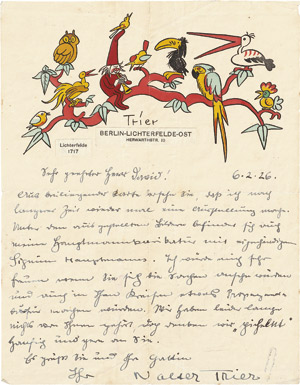 Trier
BERLIN-LICHTERFELDE-OST
HERWARTHSTR. 10
Lichterfelde
1717
Sehr geehrter Herr David! 6.2.26.
Aus beiliegender Karte ersehen Sie, daß ich nach
langer Zeit wieder mal eine Ausstellung mache.
Unter den ausgestellten Bildern befindet sich auch
meine Hauptmannkarikatur mit eigenhändigem
Signum Hauptmanns. Ich würde mich sehr
freuen wenn Sie sich die Sachen ansehen würden
und auch in Ihren Kreisen etwas Propaganda
machen würden. Wir haben leider lange
nichts von Ihnen gehört, doch denken wir
häufig und gern an Sie.
Es grüßt Sie und Ihre Gattin
Ihr Walter Trier